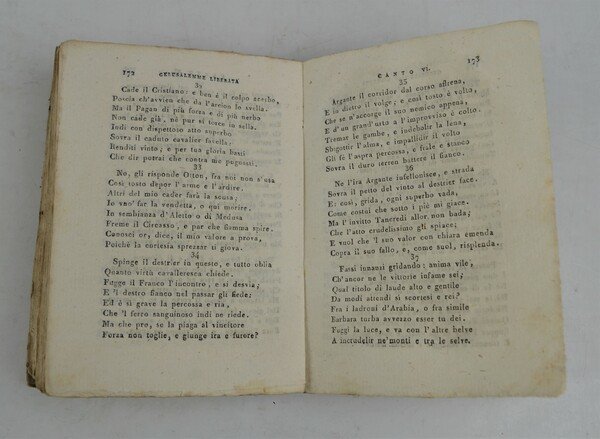 172 GERUSALEMME LIBERATA
32
Cade il Cristiano: e ben è il colpo acerbo,
Poscia ch'avvien che da l'arcion lo svella.
Ma il Pagan di più forza e di più nerbo
Non cade già, nè pur si torce in sella.
Indi con dispettoso atto superbo
Sovra il caduto cavalier favella:
Renditi vinto; e per tua gloria basti
Che dir potrai che contra me pugnasti.
33
No, gli risponde Otton, fra noi non s'usa
Così tosto depor l'arme e l'ardire.
Altri del mio cader farà la scusa;
Io vuo' far la vendetta, o qui morire.
In sembianza d'Aletto o di Medusa
Freme il Circasso, e par che fiamma spire.
Conosci or, dice, il mio valore a prova,
Poichè la cortesia sprezzar ti giova.
34
Spinge il destrier in questo, e tutto oblia
Quanto virtù cavalleresca chiede.
Fugge il Franco l'incontro, e si desvia;
E 'l destro fianco nel passar gli fiede:
Ed è sì grave la percossa e ria,
Che 'l ferro sanguinoso indi ne riede.
Ma che pro, se la piaga al vincitore
Forza non toglie, e giunge ira e furore?
CANTO VI. 173
35
Argante il corridor dal corso affrena,
E in dietro il volge; e così tosto è volto,
Che se n'accorge il suo nemico appena,
E d'un grand'urto a l'improvviso è colto.
Tremar le gambe, e indebolir la lena,
Sbigottir l'alma, e impallidir il volto
Gli fè l'aspra percossa, e frale e stanco
Sovra il duro terren battere il fianco.
36
Ne l'ira Argante infellonisce, e strada
Sovra il petto del vinto al destrier face.
E: così, grida, ogni superbo vada,
Come costui che sotto i piè mi giace.
Ma l'invitto Tancredi allor non bada;
Che l'atto crudelissimo gli spiace;
E vuol che 'l suo valor con chiara emenda
Copra il suo fallo, e, come suol, risplenda.
37
Fassi innanzi gridando: anima vile,
Ch'ancor ne le vittorie infame sei;
Qual titolo di laude alto e gentile
Da modi attendi sì scortesi e rei?
Fra i ladroni d'Arabia, o fra simile
Barbara turba avvezzo esser tu dei.
Fuggi la luce, e va con l'altre belve
A incrudelir ne'monti e tra le selve.